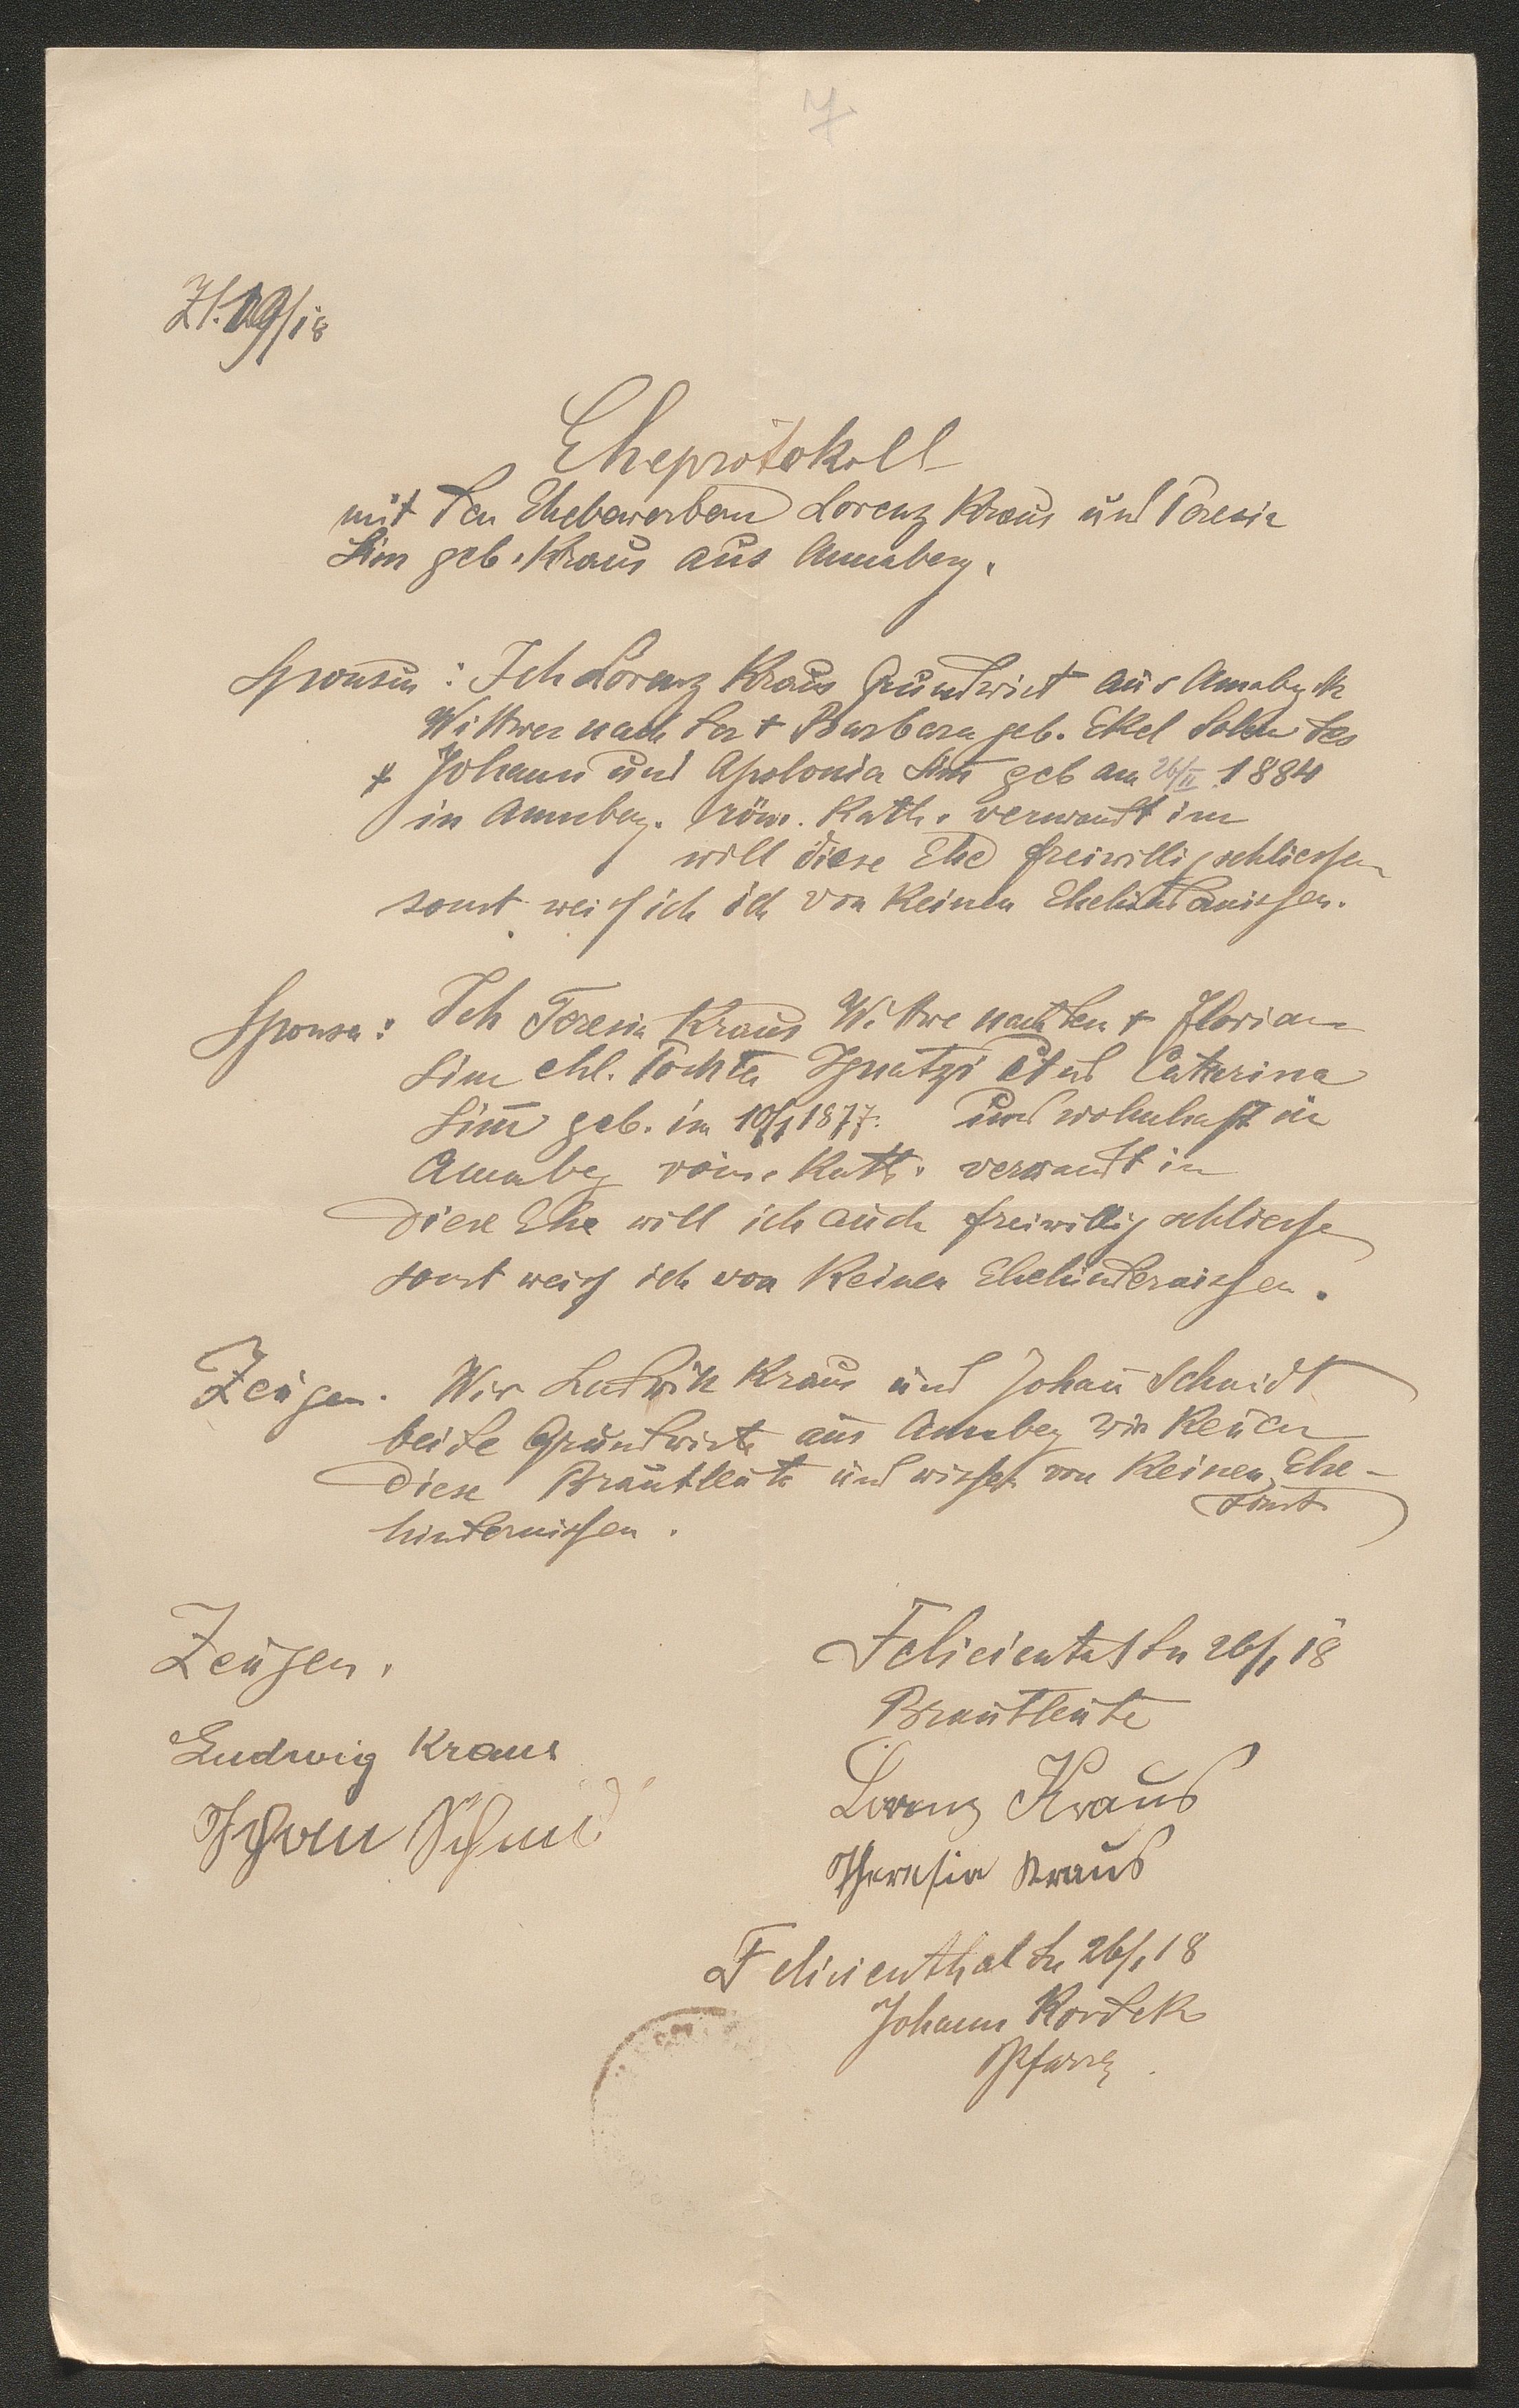 7
Zl. 19/18
Eheprotokoll
mit den Ehebewerbern Lorenz Kraus und Teresia
Sim geb. Kraus aus Annaberg.
Sponsus: Ich Lorenz Kraus Grundwirt aus
Wittwer nach der + Barbara geb. Ekel Sohn des
+ Johann und Apolonia Sim̅ geb am 26/II 1884
in Annaberg. röm. Kath. verwandt im
will diese Ehe freiwillig schliessen
sonst weiss ich ich von keinen Ehehindernissen.
Sponsa: Ich Teresia Kraus Wittwe nach den + Florian
Sim ehl. Tochter Ignatzi und Caterina
Sim̅ geb. im 10/1 1877. und wohnhaft in
Annaberg röm. Kath. verwandt in
Diese Ehe will ich auch freiwillig schliesse
sonst weiss ich von keinen Ehehindernissen.
Zeugen. Wir Ludwik Kraus und Johan̅ Schmidt
beide Grundwirte aus Annaberg wir kennen
diese Brautleute und wissen von keinen Ehe-
sonst
hindernissen.
Zeugen.
Felicienthal den 26/1 18
Brautleute
Ludwig Kraus
Lorenz Kraus
Johann Schmid
Theresia Kraus
Felicienthal den 26/1 18
Johann Kordek
Pfarrer